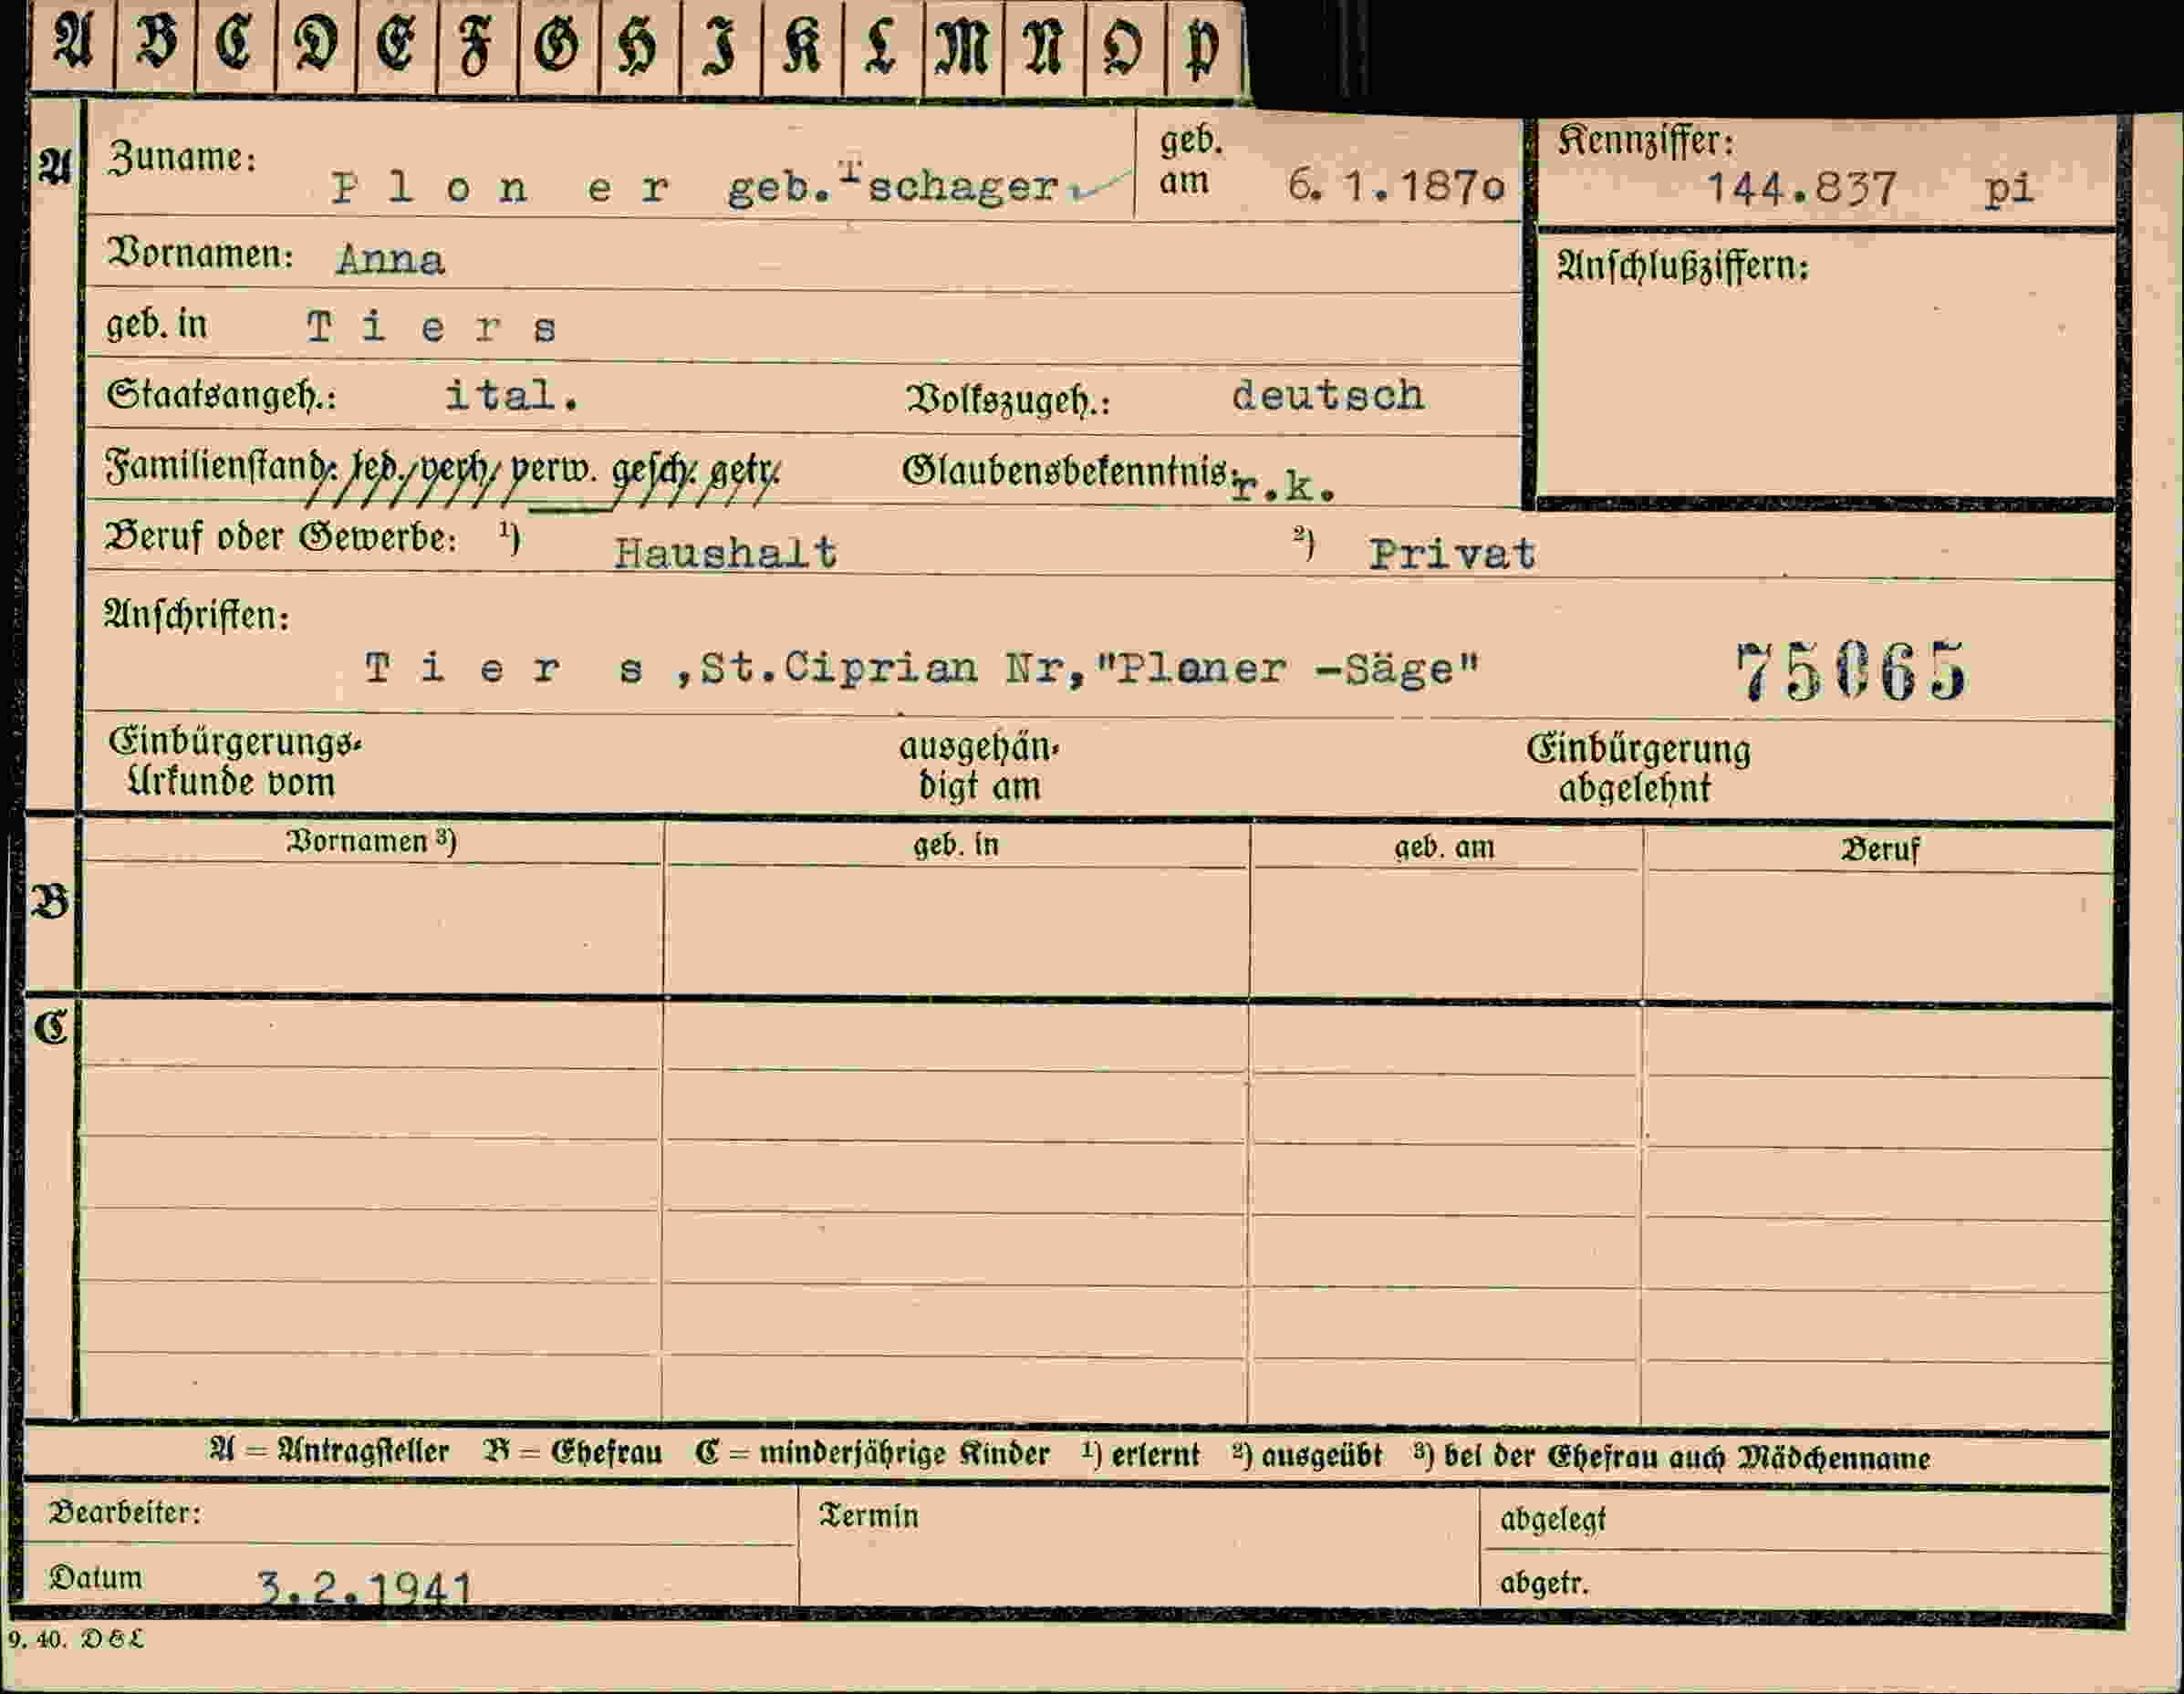 A B C D E F G H I K L M N O P
A Zuname: Ploner geb. Tschager geb. am 6.1.1870 Kennziffer: 144.837 pi
Vornamen: Anna Anschlußziffern:
geb. in Tiers
Staatsangeh.: ital. Volkszugeh.: deutsch
Familienstand: led. verh. verw. gesch. getr. Glaubensbekenntnis: r.k.
Beruf oder Gewerbe: ¹) Haushalt ²) Privat
Anschriften:
Tiers,St.Ciprian Nr,"Ploner -Säge" 75065
Einbürgerungs-Urkunde vom ausgehändigt am Einbürgerung abgelehnt
Vornamen ³) geb. in geb. am Beruf
B
C
A = Antragsteller B = Ehefrau C = minderjährige Kinder ¹) erlernt ²) ausgeübt ³) bei der Ehefrau auch Mädchenname
Bearbeiter: Termin abgelegt
Datum 3.2.1941 abgetr.
9. 40. D & L